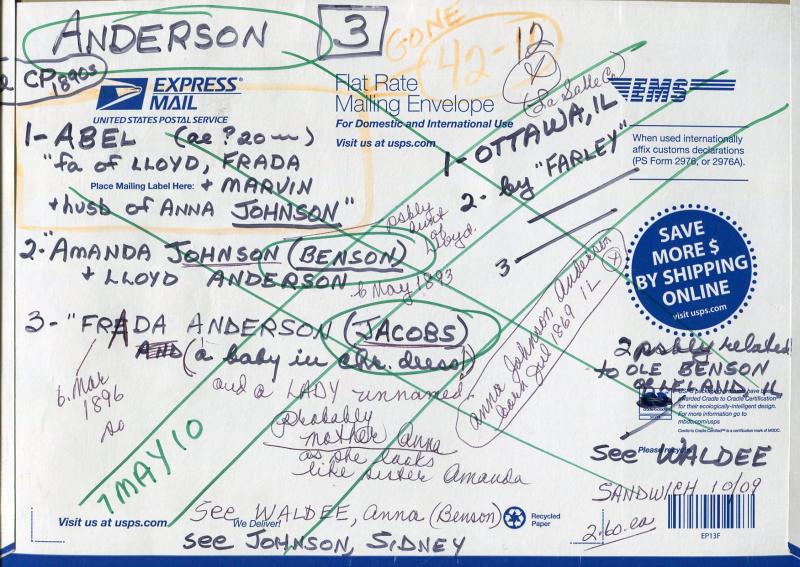 ANDERSON 3
GONE
42-12
12
X
(La Salle Co.)
CP 1890s
EXPRESS MAIL
UNITED STATES POSTAL SERVICE
Flat Rate
Mailing Envelope
For Domestic and International Use
Visit us at usps.com
EMS
When used internationally
affix customs declarations
(PS Form 2976, or 2976A).
1- ABEL (ae ? 20 —)
"fa of LLOYD, FRADA
Place Mailing Label Here:
+ MARVIN
+ husb of ANNA JOHNSON"
1- OTTAWA, IL
2- by "FARLEY"
3
psbly aunt of Lloyd.
2- "AMANDA JOHNSON (BENSON)
+ LLOYD ANDERSON
6 May 1893
3- "FRADA ANDERSON (JACOBS)
AND (a baby in chr. dress)
6. Mar
1896
so
and a LADY unnamed.
probably
mother Anna
as she looks
like sister Amanda
Anna Johnson Anderson
born Jul 1869 IL
X
SAVE
MORE $
BY SHIPPING
ONLINE
visit usps.com
2 psbly related
to OLE BENSON
of LELAND, IL
packaging products have been
awarded Cradle to Cradle Certification
for their ecologically-intelligent design.
For more information go to
mbdc.com/usps
Cradle to Cradle Certified is a certification mark of MBDC.
Please recycle
See WALDEE
SANDWICH 10/09
2.60 ea
EP13F
7 MAY 10
Visit us at usps.com
We Deliver!
Recycled
Paper
See WALDEE, Anna (Benson)
See JOHNSON, SIDNEY